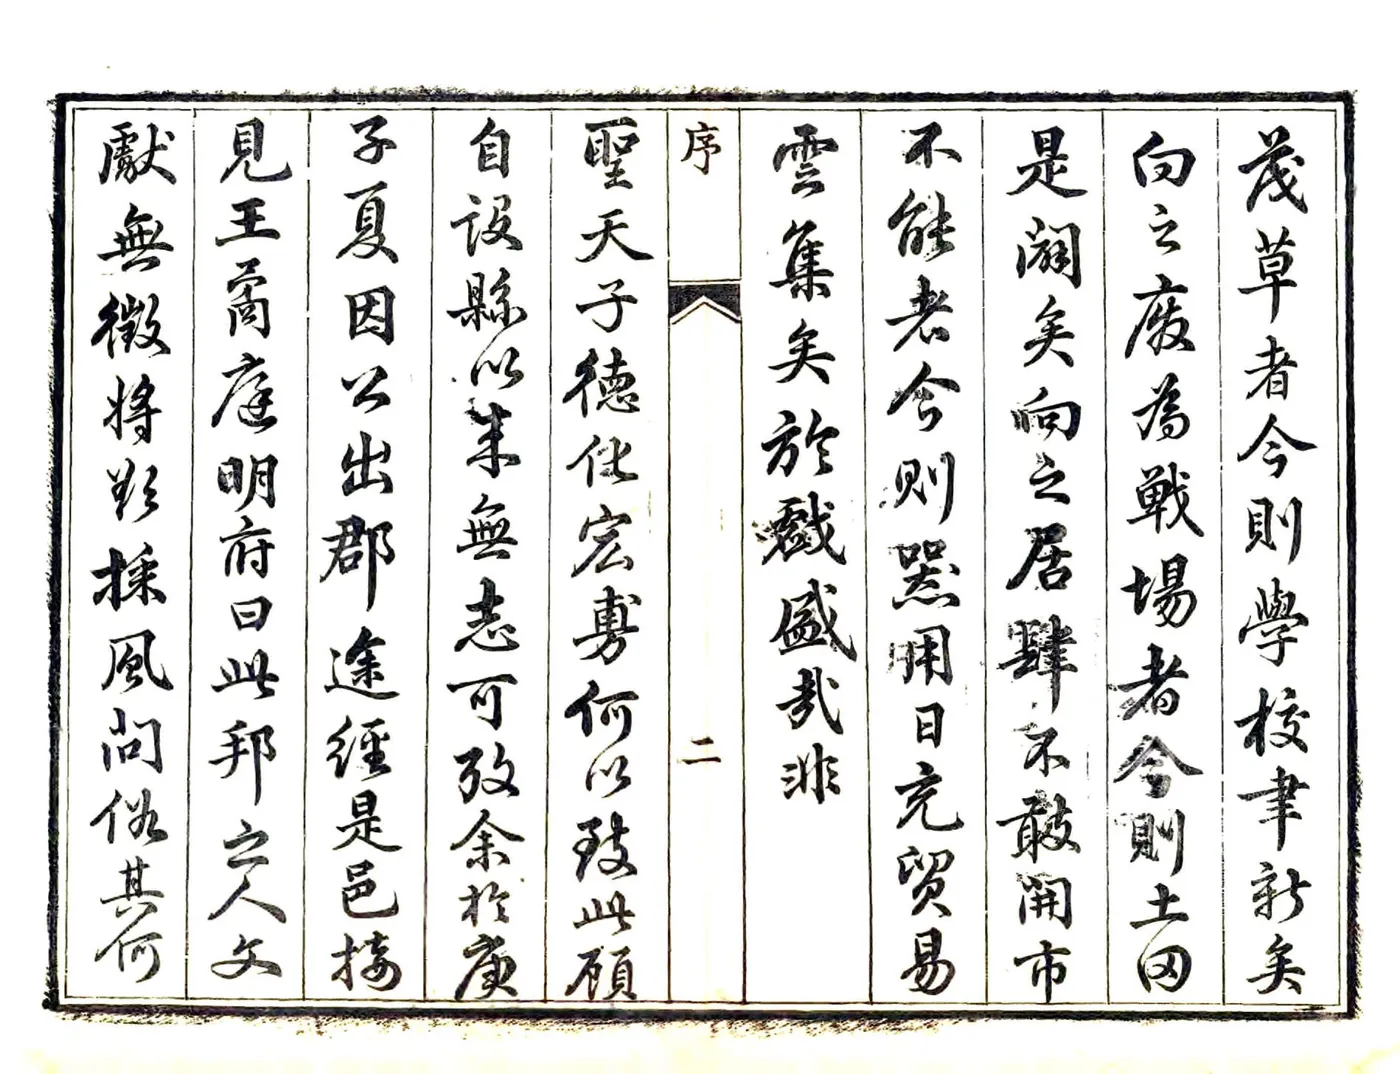 茂草者今則學校聿新矣
向之廢為戰場者今則土田
是闢矣向之居肆不敢開市
不能者今則器用日充貿易
雲集矣於戲盛哉非
序
二
聖天子德化宏敷何以致此顧
自設縣以來無志可攷余於庚
子夏因公出郡途經是邑接
見王喬庭明府曰此邦之人文
獻無徵將欲採風問俗其何